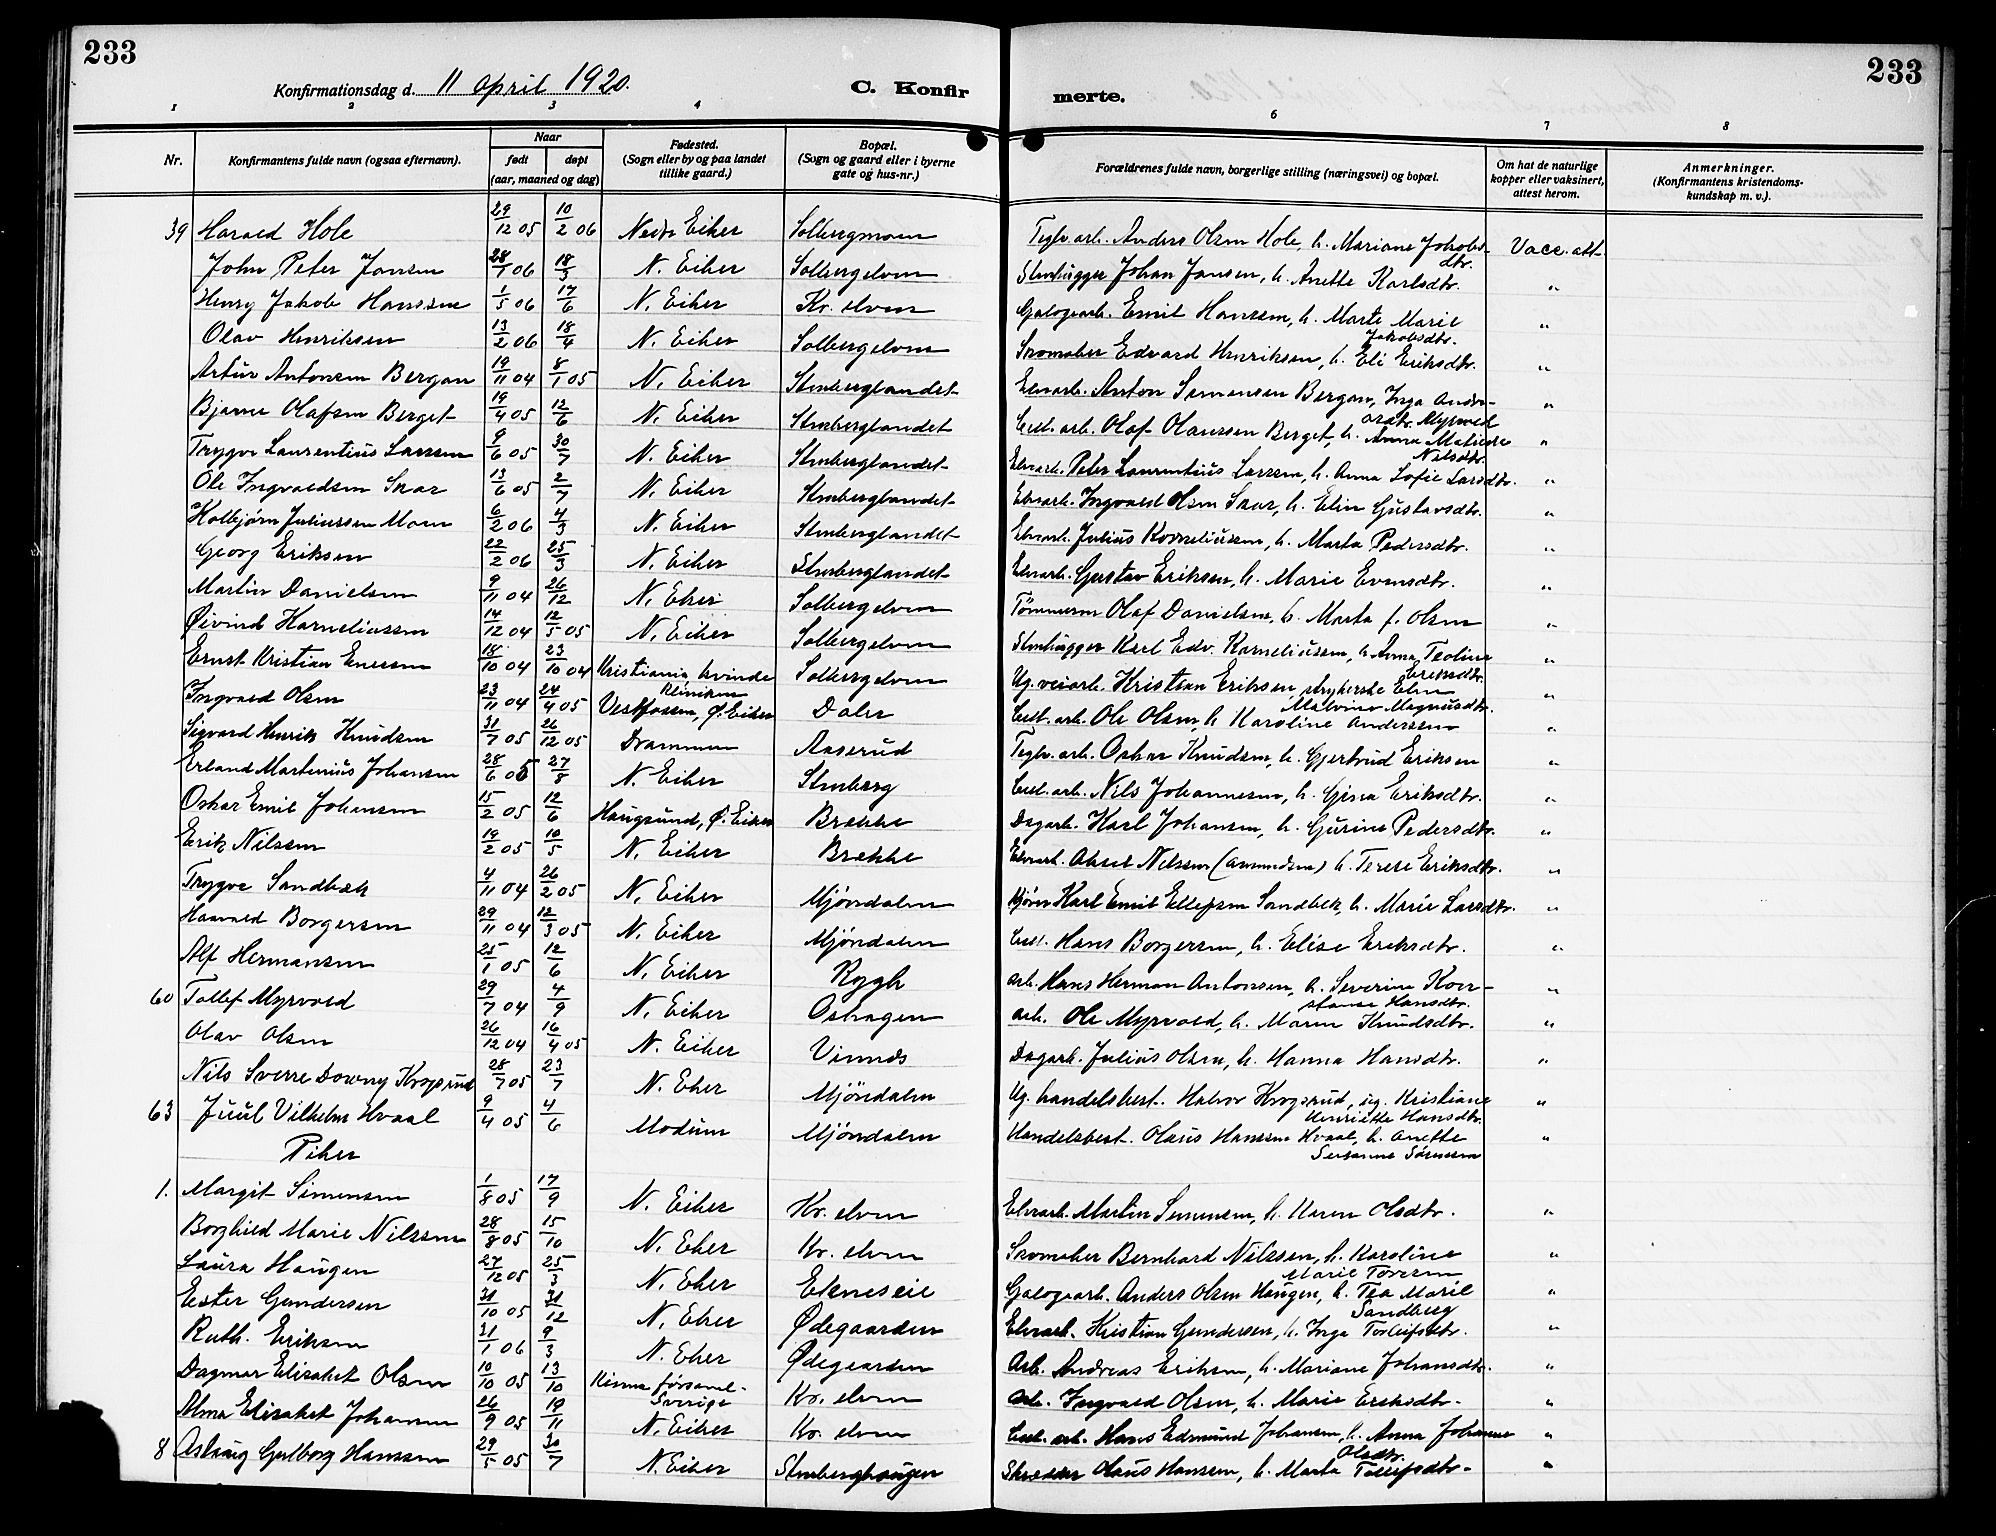 233
Konfirmationsdag d. 11 april 1920.
C. Konfirmerte.
233
1 2 3 4 6 7 8
Nr. Konfirmantens fulde navn (ogsaa efternavn). Naar født døpt (aar, maaned og dag) Fødested. (Sogn eller by og paa landet tillike gaard.) Bopæl. (Sogn og gaard eller i byerne gate og hus-nr.) Forældrenes fulde navn, borgerlige stilling (næringsvei) og bopæl. Om hat de naturlige kopper eller vaksinert, attest herom. Anmerkninger. (Konfirmantens kristendomskundskap m. v.).
39 Harald Hole 29/12 05 10/2 06 Nedre Eiker Solbergmoen Teglv. arb. Anders Olsen Hole, h. Mariane Jakobsdtr. Vacc. att.
John Peter Jansen 28/1 06 18/3 N. Eiker Solbergelven Stenhugger Johan Jansen, h. Anette Karlsdtr. "
Henry Jakob Hanssen 1/5 06 17/6 N. Eiker Kr. elven Galogearb. Emil Hanssen, h. Marte Marie Jakobsdtr. "
Olav Henriksen 13/2 06 18/4 N. Eiker Solbergelven Skomaker Edvard Henriksen, h. Eli Eriksdtr. "
Artur Antonsen Bergan 19/11 04 8/1 05 N. Eiker Stenberglandet Elvearb. Anton Semensen Bergan, Inga Andreasdtr. Myrvold "
Bjarne Olafsen Berget 19/4 05 12/6 N. Eiker Stenberglandet Cell. arb. Olaf Olaussen Berget, h. Anna Matilde Nilsdtr. "
Trygve Laurentius Larssen 9/6 05 30/7 N. Eiker Stenberglandet Elvearb. Peter Laurentius Larssen, h. Anna Sofie Larsdtr. "
Ole Ingvaldsen Skar 13/6 05 2/7 N. Eiker Stenberglandet Elvearb. Ingvald Olsen Skar, h. Elin Gustavsdtr. "
Kolbjørn Juliussen Moen 6/2 06 4/3 N. Eiker Stenberglandet Elvearb. Julius Korneliussen, h. Marta Pedersdtr. "
Georg Eriksen 22/2 06 25/3 N. Eiker Stenberglandet Elvearb. Gustav Eriksen, h. Marie Evensdtr. "
Martin Danielsen 9/11 04 26/12 N. Eker Solbergelven Tømmerm Olaf Danielsen, h. Marta f. Olsen "
Øivind Korneliussen 14/12 04 12/5 05 N. Eiker Solbergelven Stenhugger Karl Edv. Korneliussen, h. Anna Teoline Eriksdtr. "
Ernst Kristian Enersen 18/10 04 23/10 04 Kristiania kvindeklinikken Solbergelven Ug. veiarb. Kristian Eriksen, strykerske Elen Malvine Magnusdtr. "
Ingvald Olsen 23/11 04 24/4 05 Vestfossen, Ø. Eiker Daler Cell. arb. Ole Olsen, h. Karoline Anderssen "
Sigvard Henrik Knudsen 31/7 05 26/12 05 Drammen Aaserud Teglv. arb. Oskar Knudsen, h. Gjertrud Eriksen "
Erland Martinius Johansen 28/6 05 27/8 N. Eiker Stenberg Cell. arb. Nils Johannesen, h. Gina Eriksdtr. "
Oskar Emil Johansen 15/2 05 12/6 Haugsund, Ø. Eiker Brekke Dagarb. Karl Johansen, h. Gurine Pedersdtr. "
Erik Nilssen 19/2 05 10/5 N. Eiker Brekke Elvearb. Aksel Nilssen (Amundsen) h. Terese Eriksdtr. "
Trygve Sandbæk 4/11 04 26/2 05 N. Eiker Mjøndalen Kjører Karl Emil Ellefsen Sandbek, h. Marie Larsdtr. "
Haavald Borgersen 29/11 04 12/3 05 N. Eiker Mjøndalen Cell. Hans Borgersen, h. Elise Eriksdtr. "
Alf Hermansen 25/1 05 12/6 N. Eiker Rygh arb. Hans Herman Antonsen, h. Severine Konstanse Hansdtr. "
60 Tollef Myrvold 29/7 04 4/9 N. Eiker Oshagen arb. Ole Myrvold, h. Maren Knudsdtr. "
Olav Olsen 26/12 04 16/4 05 N. Eiker Vinnes Dagarb. Julius Olsen, h. Hanna Hansdtr. "
Nils Sverre Downy Krogsrud 28/7 05 23/7 N. Eker Mjöndalen Ug. handelsbest. Halvor Krogsrud, ug. Kristiane Henriette Hansdtr. "
63 Juul Vilhelm Hvaal 9/4 05 4/6 Modum Mjöndalen Handelsbest. Olaus Hanssen Hvaal, h. Anette Susanne Sørensen "
Piker
1. Margit Simensen 1/8 05 17/9 N. Eiker Kr. elven Elvearb. Martin Semensen, h. Karen Olsdtr. "
Borghild Marie Nilssen 28/8 05 15/10 N. Eker Kr. elven Skomaker Bernhard Nilssen, h. Karoline Marie Toresen "
Laura Haugen 27/12 05 25/3 N. Eker Ekneseie Galogearb. Anders Olsen Haugen, h. Tea Marie Sandberg "
Ester Gundersen 31/10 05 31/12 N. Eker Ødegaarden Elvearb. Kristian Gundersen, h. Inga Torleifsdtr. "
Ruth Eriksen 31/1 06 9/3 N. Eker Ødegaarden Arb. Andreas Eriksen, h. Mariane Johansdtr. "
Dagmar Elisabet Olsen 10/10 05 13/10 församl. Sverige Kr. elven arb. Ingvald Olsen, h. Marie Eriksdtr. "
Alma Elisabet Johansen 26/9 05 19/11 N. Eiker Kr. elven Cell. arb. Hans Edmund Johansen, h. Anna Johanne Olsdtr. "
8 Aslaug Gulborg Hanssen 29/5 05 30/7 N. Eiker Stenberghaugen Skrædder Olaus Hanssen, h. Marta Tollefsdtr. "